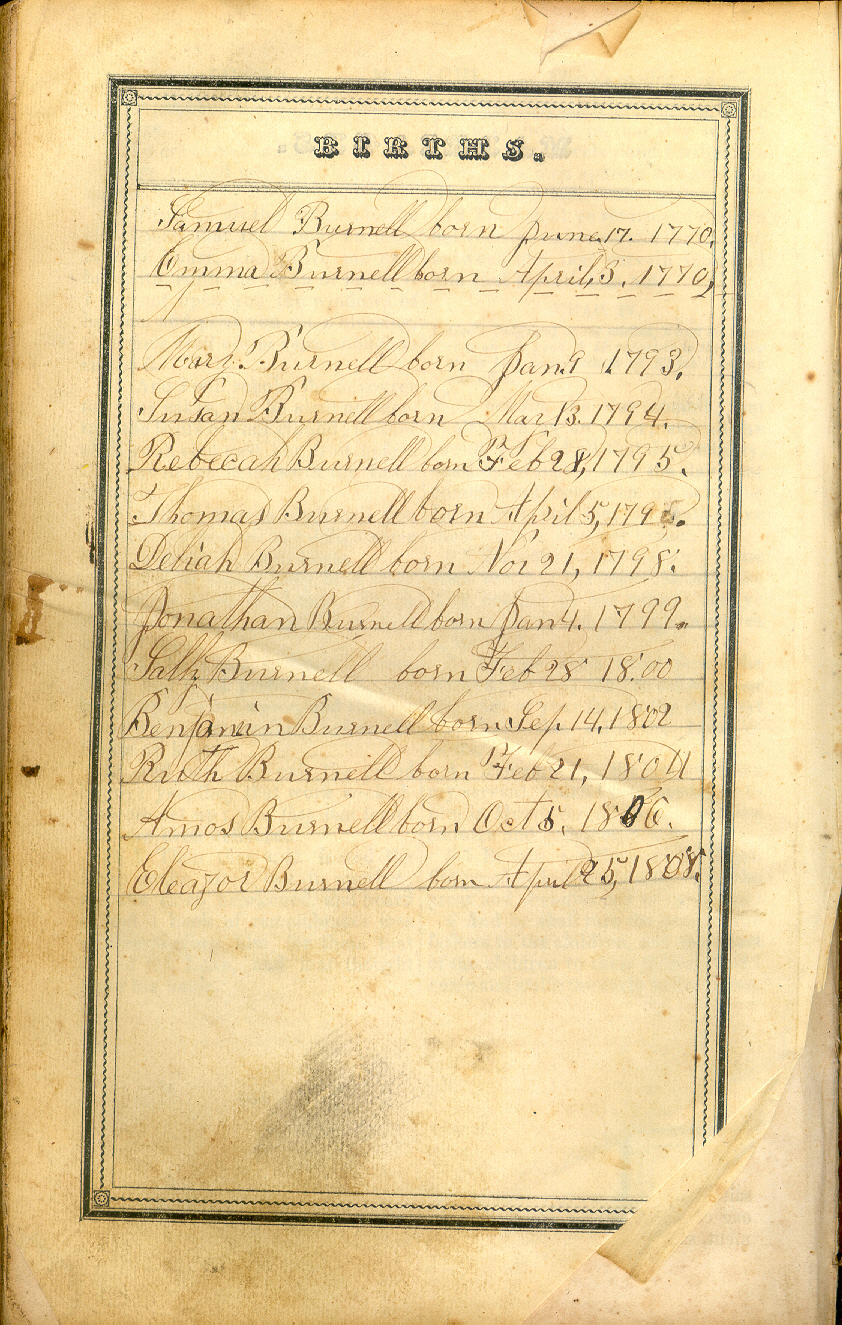 BIRTHS.
Samuel Burnell born June 17. 1770.
Emma Burnell born April, 3. 1770,
Mary Burnell born Jan. 9 1793.
Susan Burnell born Mar 13. 1794.
Rebecah Burnell born Feb 28, 1795.
Thomas Burnell born April 5,
Burnell born Nov 21, 1798.
Jonathan Burnell born Jan 4. 1799.
Sally Burnell born Feb 28 18.00
Benjamin Burnell born Sep 14, 1802
Ruth Burnell born Feb 21, 1804
Amos Burnell born Oct 5. 1806.
Eleazor Burnell born April 25, 1808.